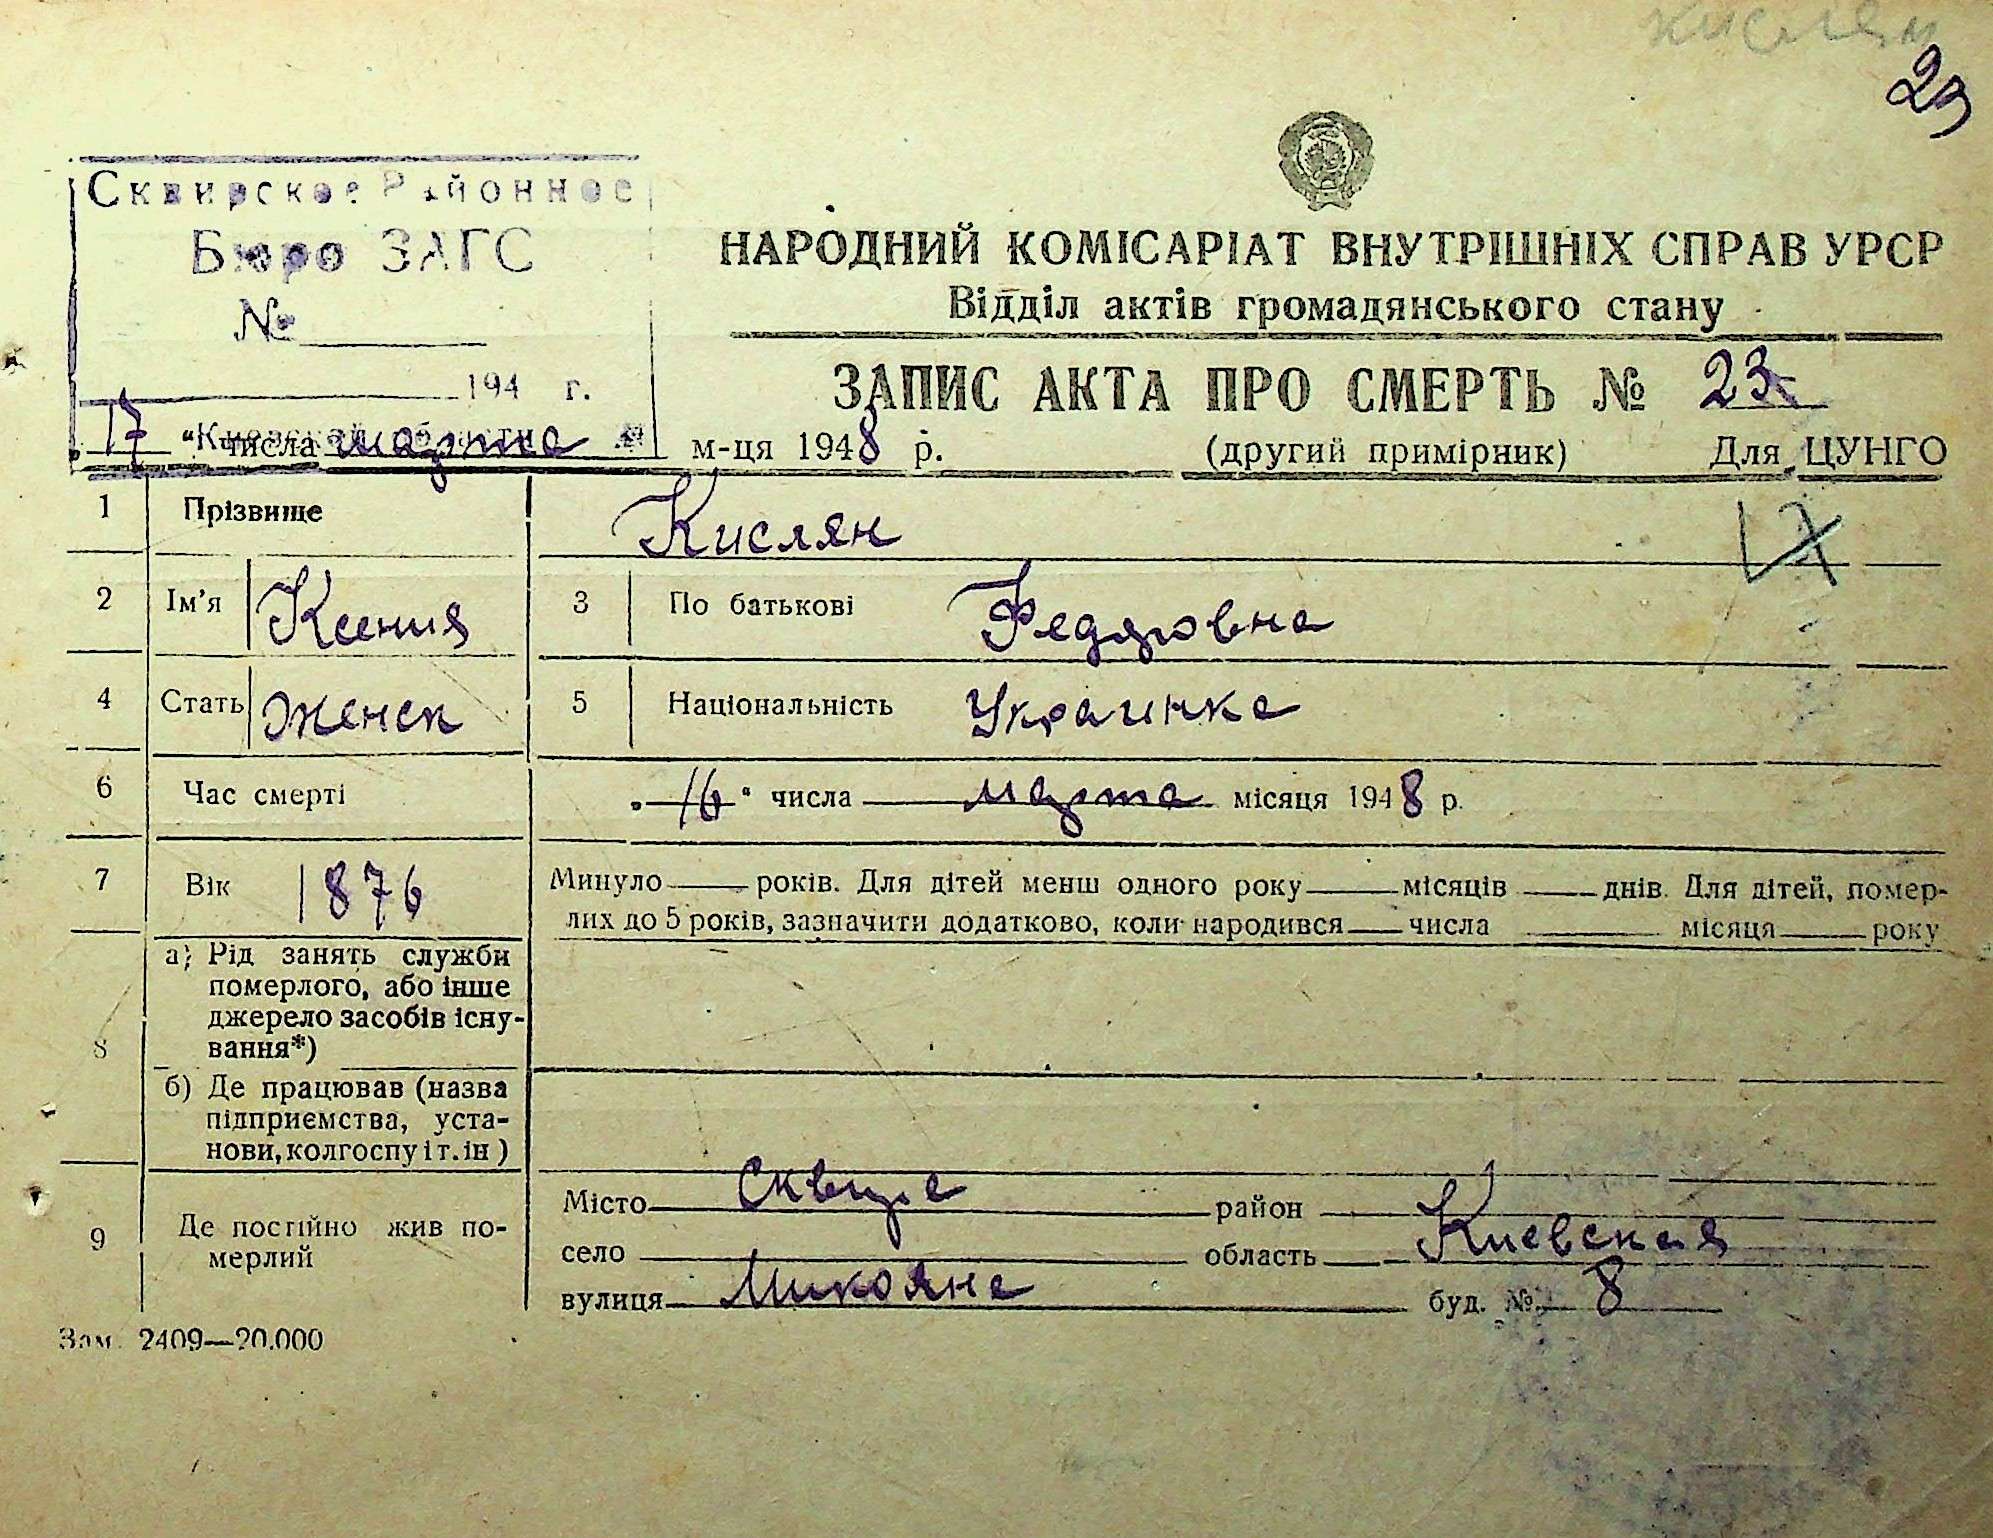 кислян
23
Сквирское Районное
Бюро ЗАГС
№
194 г.
Киевской области
НАРОДНИЙ КОМІСАРІАТ ВНУТРІШНІХ СПРАВ УРСР
Відділ актів громадянського стану
ЗАПИС АКТА ПРО СМЕРТЬ № 23
„17“ числа марта м-ця 1948 р. (другий примірник) Для ЦУНГО
1 Прізвище Кислян
2 Ім’я Ксения 3 По батькові Федоровна
4 Стать женск 5 Національність Украинка
6 Час смерті „16“ числа марта місяця 1948 р.
7 Вік 1876 Минуло років. Для дітей менш одного року місяців днів. Для дітей, помер-
лих до 5 років, зазначити додатково, коли народився числа місяця року
8 а) Рід занять служби
померлого, або інше
джерело засобів існу-
вання*)
б) Де працював (назва
підприємства, уста-
нови, колгоспу і т. ін)
9 Де постійно жив по-
мерлий
Місто Сквира район
село область Киевская
вулиця Микояна буд. № 8
Зам. 2409—20.000